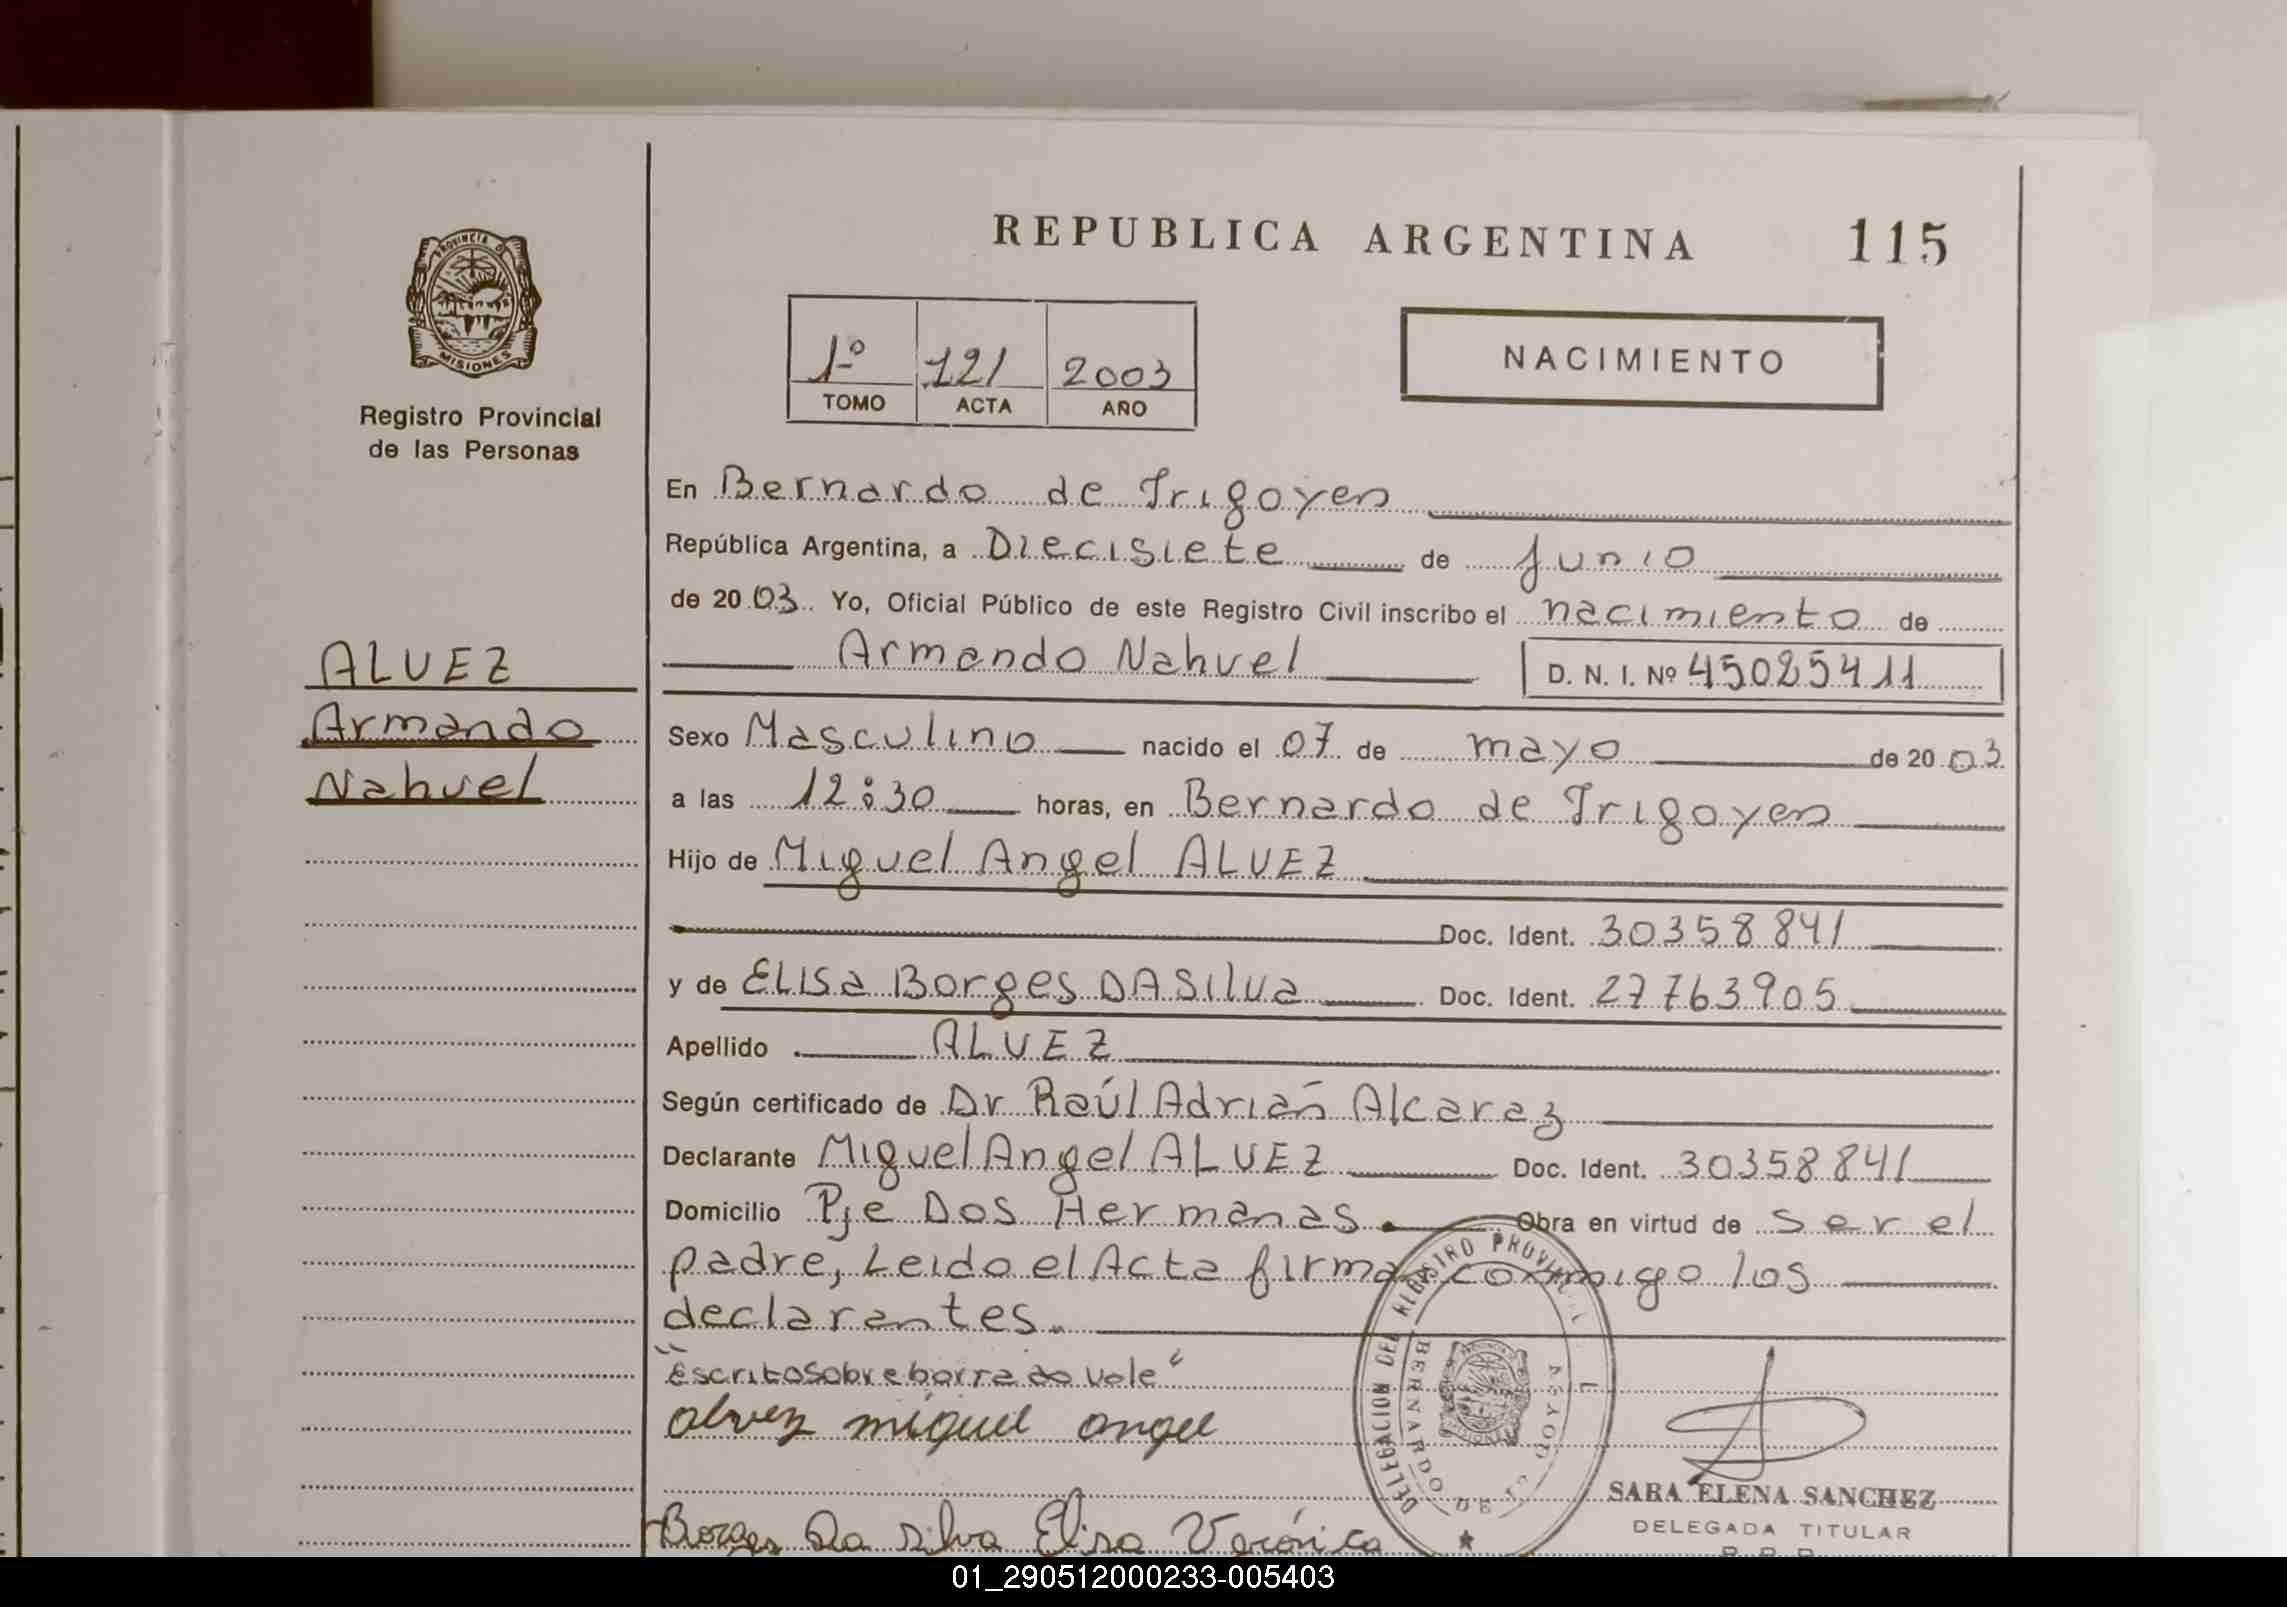 REPUBLICA ARGENTINA 115
PROVINCIA DE
MISIONES
Registro Provincial
de las Personas
1º 121 2003
TOMO ACTA AÑO
NACIMIENTO
En Bernardo de Irigoyen
República Argentina, a Diecisiete de Junio
de 2003. Yo, Oficial Público de este Registro Civil inscribo el nacimiento de
Armando Nahuel D. N. I. Nº 45025411
ALVEZ
Armando
Nahuel
Sexo Masculino nacido el 07 de mayo de 2003
a las 12:30 horas, en Bernardo de Irigoyen
Hijo de Miguel Angel ALVEZ
Doc. Ident. 30358841
y de ELISa Borges DASilva Doc. Ident. 27763905
Apellido ALVEZ
Según certificado de Dr Raúl Adrián Alcaraz
Declarante Miguel Angel ALVEZ Doc. Ident. 30358841
Domicilio Pje Dos Hermanas. Obra en virtud de ser el
padre, Leido el Acta firman conmigo los
declarantes.
"Escrito sobre borrado vale"
alvez miguel angel
Borges Da silva Elisa Verónica
DELEGACION DEL REGISTRO PROVINCIAL
BERNARDO DE IRIGOYEN
SARA ELENA SANCHEZ
DELEGADA TITULAR
01_290512000233-005403